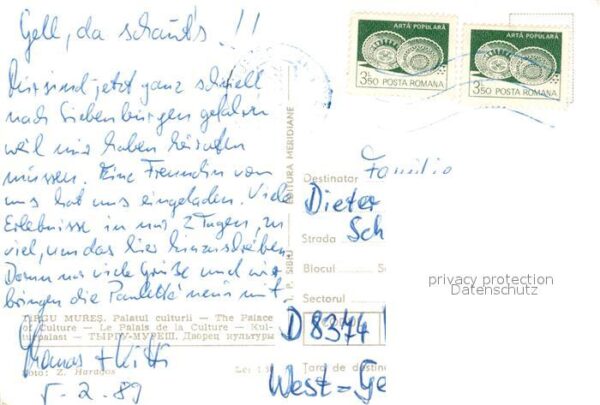 Gell, da schaut's !!
Wir sind jetzt ganz schnell
nach Siebenbürgen gefahren
weil wir haben
müssen. Eine Freundin von
uns hat uns eingeladen. Viele
Erlebnisse in nur 2 Tagen, zu
viel, um das hier
Dann nur viele Grüße und wir
bringen die mit.
Thomas + Kitti
5.2.89
TÎRGU MUREȘ. Palatul culturii — The Palace
of Culture — Le Palais de la Culture — Kul-
turpalast — ТЫРГУ-МУРЕШ. Дворец культуры
Foto: Z. Haragos
Lei 1.50
I. P. SIBIU — EDITURA MERIDIANE
ARTĂ POPULARĂ
3,50 POSTA ROMANA
ARTĂ POPULARĂ
3,50 POSTA ROMANA
Familie
Destinatar
Dieter
Sch
Strada
Blocul
Sc
Sectorul
D 8374
Țara de destinaț
West=Ge
privacy protection
Datenschutz